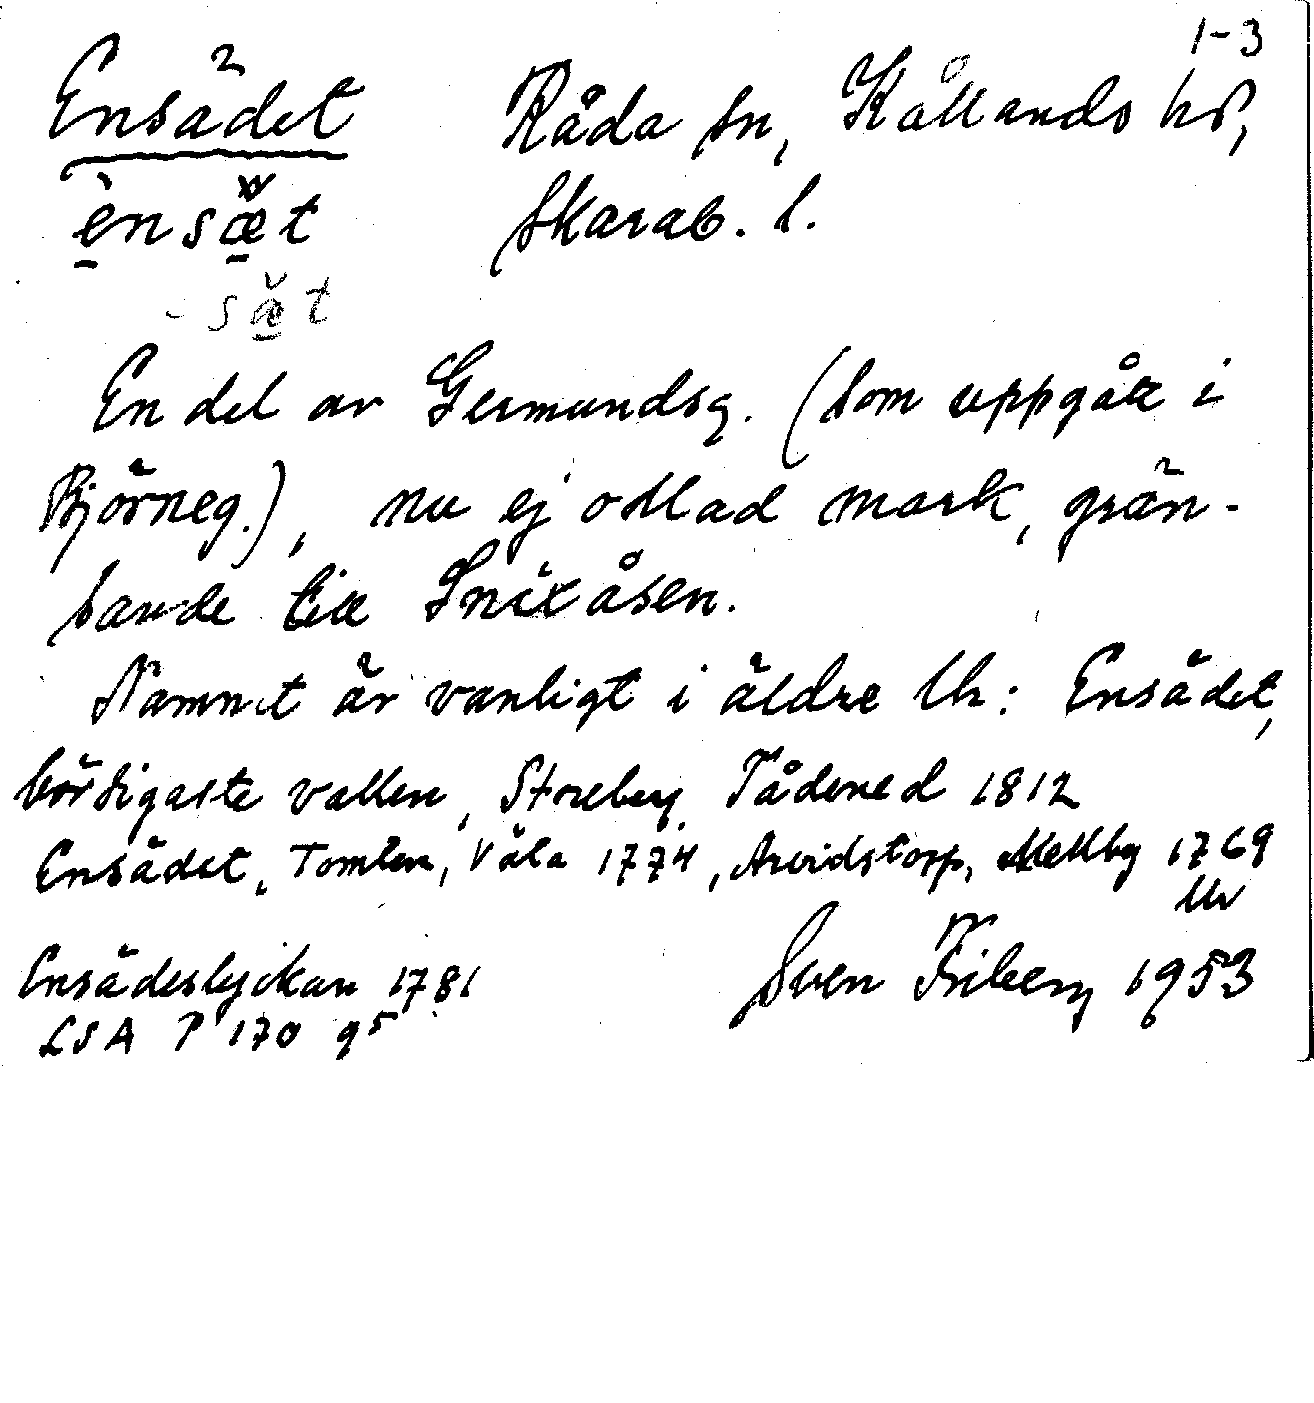 1-3
Ensädet Råda sn, Kållands hd,
ènsæ̌t Skarab. l.
-sæ̌t
En del av Germundsg. (som uppgått i
Björneg.), nu ej odlad mark, grän-
sande till Snixåsen.
Namnet är vanligt i äldre Uh: Ensädet,
bördigaste vallen, Storeberg, Tådened 1812
Ensädet, Tomten, Väla 1774, Arvidstorp, Mellby 1769
Ensädeslyckan 1781 Sven Friberg 1953
LSA P 170 95